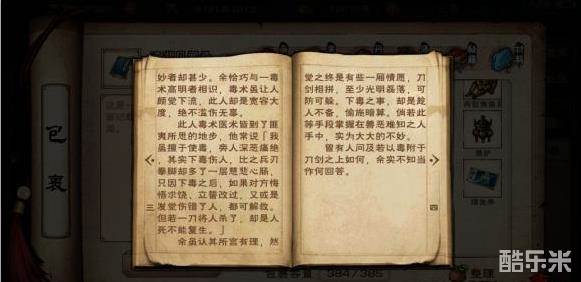 妙者却甚少。余恰巧与一毒
术高明者相识，毒术虽让人
颇觉下流，此人却是宽容大
度，绝不滥伤无辜。
此人毒术医术皆到了匪
夷所思的地步，他常说「我
虽擅于使毒，旁人深恶痛绝
，其实下毒伤人，比之兵刃
拳脚却多了一层慈悲心肠，
只因下毒之后，如果对方悔
悟求饶、立誓改过，又或是
发觉伤错了人，都可解救。
但若一刀将人杀了，却是人
死不能复生。」
余虽认其所言有理，然
三
觉之终是有些一厢情愿，刀
剑相拼，至少光明磊落，可
防可躲。下毒之事，却是趁
人不备，偷施暗算。倘若此
等手段掌握在善恶难知之人
手中，实为大大的不妙。
曾有人问及若以毒附于
刀剑之上如何，余实不知当
作何回答。
四
包裹
包裹容量（384/385）
整理
酷乐米